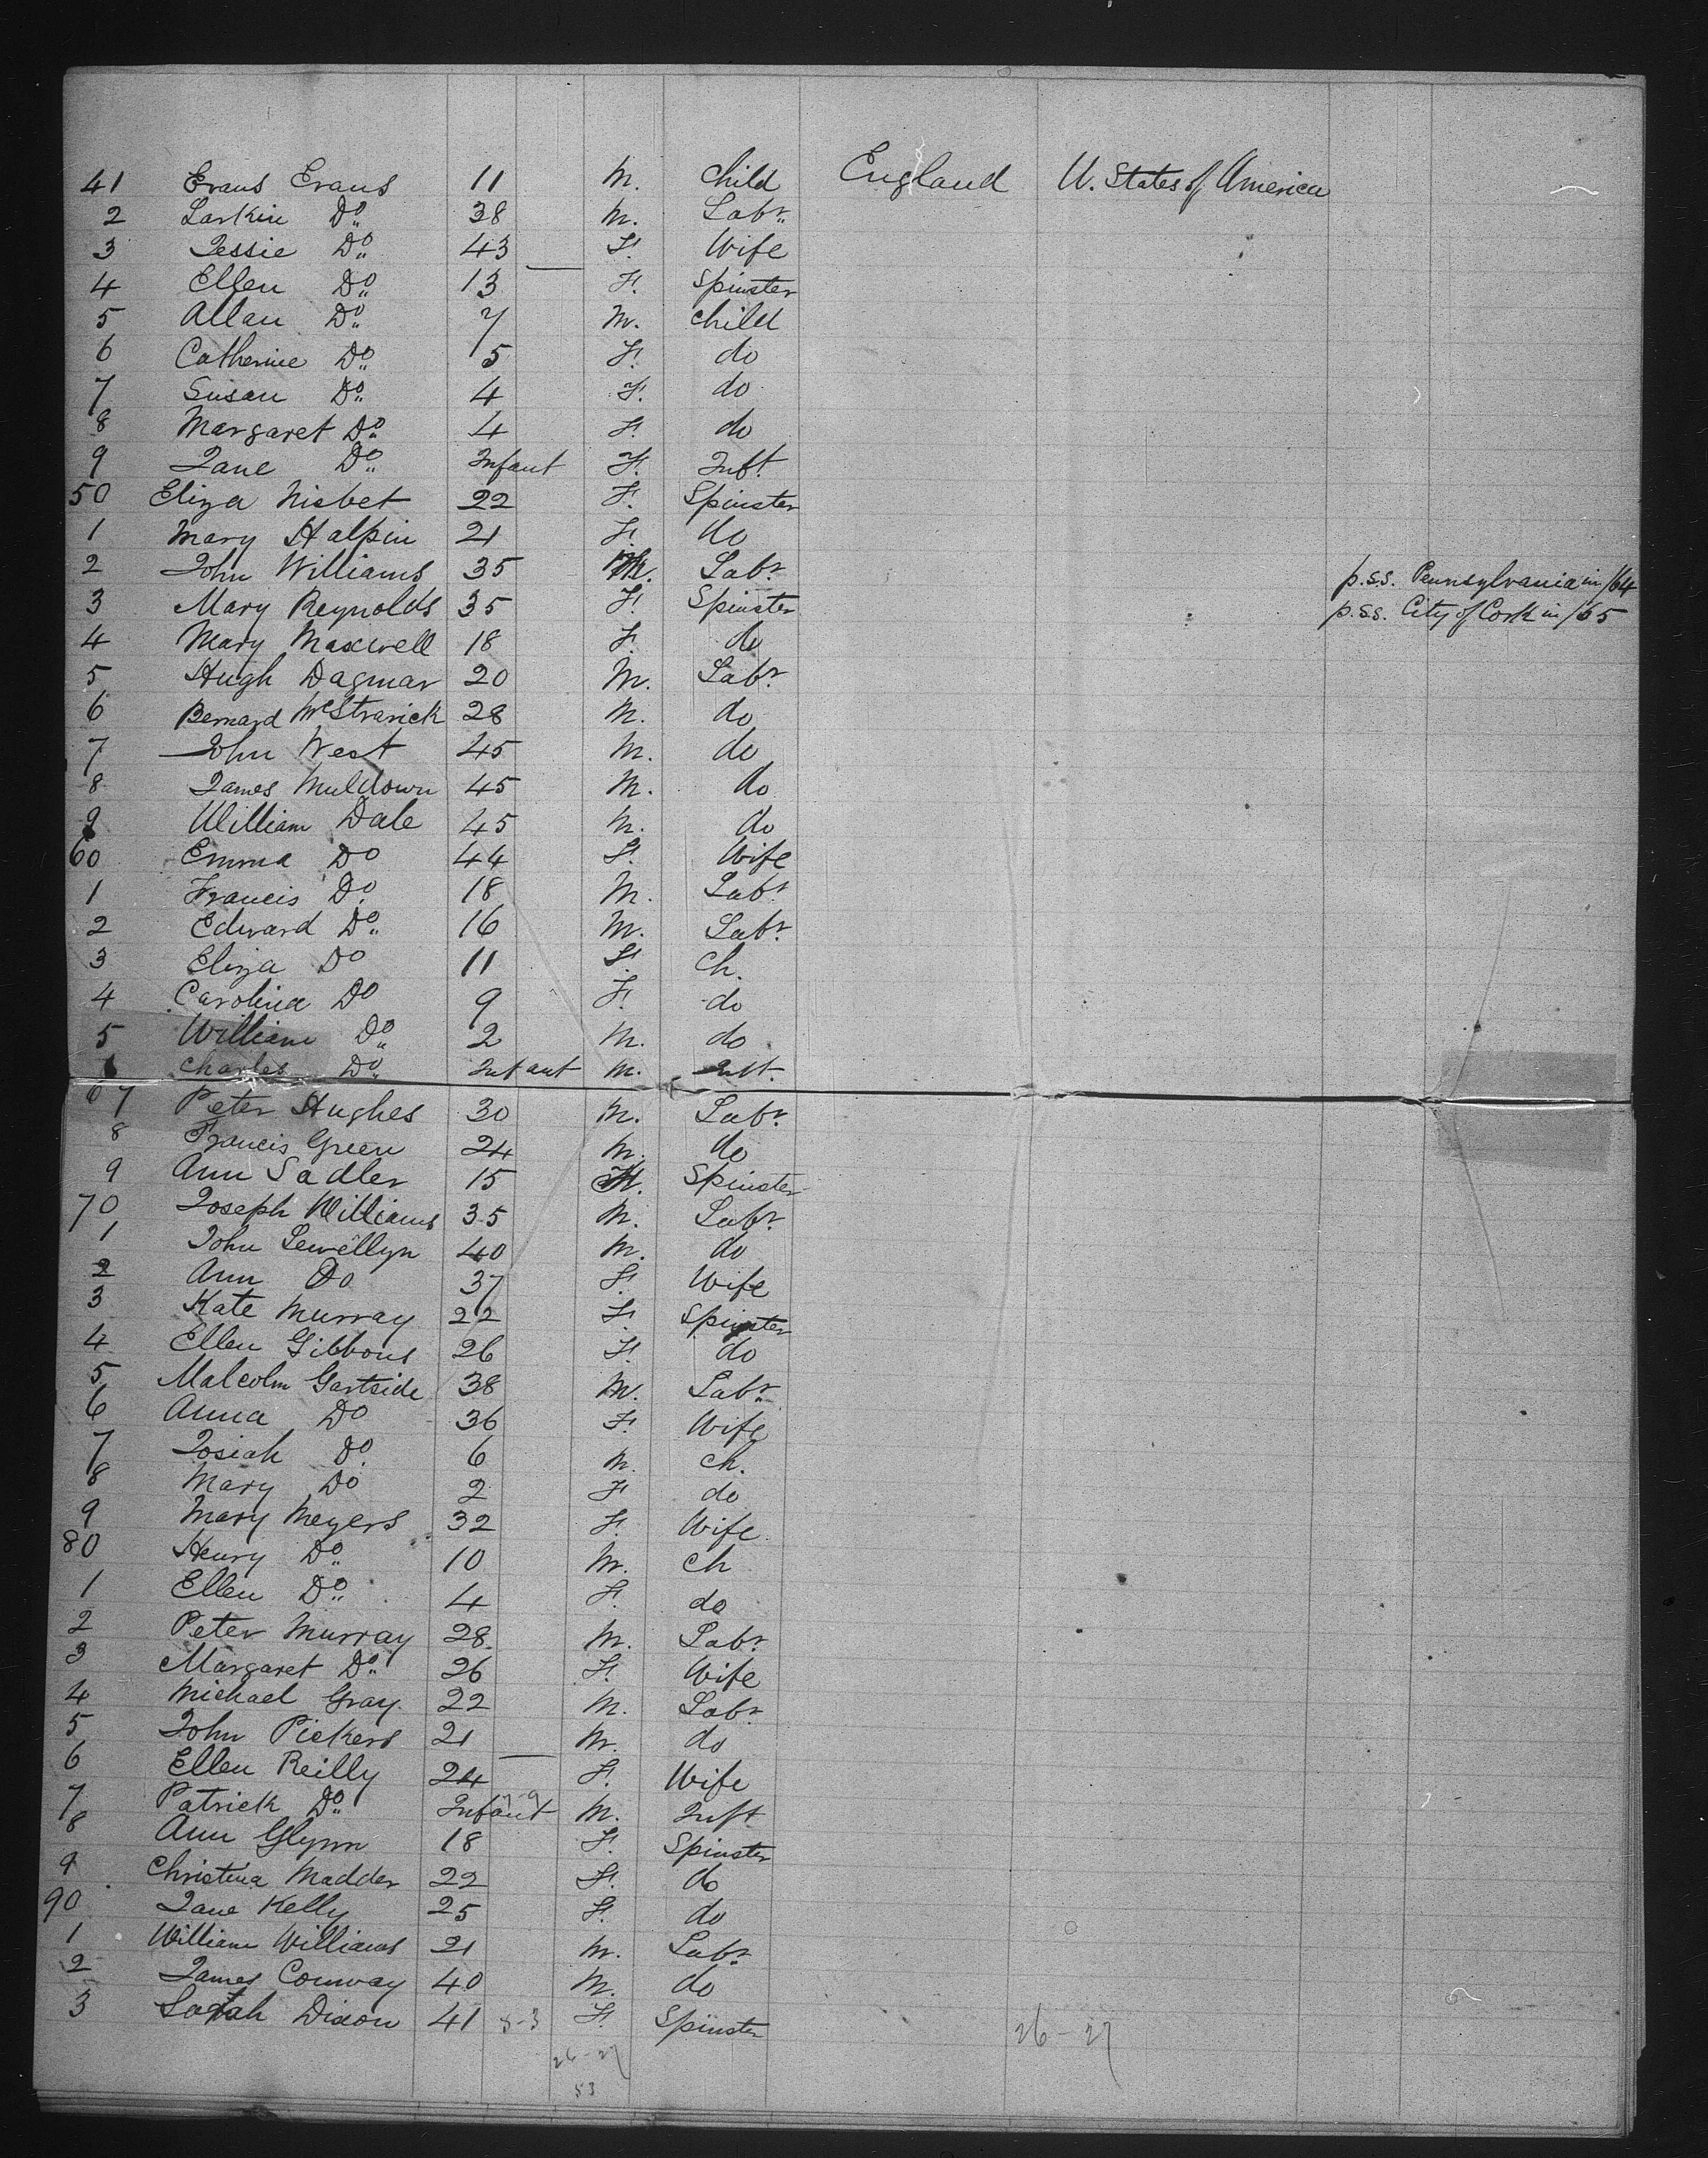 41 Evans Evans 11 M. Child England U. States of America
2 Larkin Do 38 M. Labr.
3 Jessie Do 43 F. Wife
4 Ellen Do 13 F. Spinster
5 Allan Do 7 M. Child
6 Catherine Do 5 F. do
7 Susan Do 4 F. do
8 Margaret Do 4 F. do
9 Jane Do Infant F. Inft.
50 Eliza Nisbet 22 F. Spinster
1 Mary Halpin 21 F. do
2 John Williams 35 M. Labr. p.s.s. Pennsylvania in /64
3 Mary Reynolds 35 F. Spinster p.s.s. City of Cork in /65
4 Mary Maxwell 18 F. do
5 Hugh Dagmar 20 M. Labr.
6 Bernard McStravick 28 M. do
7 John West 45 M. do
8 James Muldown 45 M. do
9 William Dale 45 M. do
60 Emma Do 44 F. Wife
1 Francis Do 18 M. Labr.
2 Edward Do 16 M. Labr.
3 Eliza Do 11 F. Ch.
4 Carolina Do 9 F. do
5 William Do 2 M. do
6 Charles Do Infant M. Inft.
67 Peter Hughes 30 M. Labr.
8 Francis Green 24 M. do
9 Ann Sadler 15 Spinster
70 Joseph Williams 35 M. Labr.
1 John Lewellyn 40 M. do
2 Ann Do 37 F. Wife
3 Kate Murray 22 F. Spinster
4 Ellen Gibbons 26 F. do
5 Malcolm Gartside 38 M. Labr.
6 Anna Do 36 F. Wife
7 Josiah Do. 6 M. Ch.
8 Mary Do 2 F do
9 Mary Meyers 32 F. Wife
80 Henry Do 10 M. Ch
1 Ellen Do 4 F. do
2 Peter Murray 28 M. Labr.
3 Margaret Do 26 F. Wife
4 Michael Gray 22 M. Labr.
5 John Pickers 21 M. do
6 Ellen Reilly 24 F. Wife
7 Patrick Do Infant M. Inft
8 Ann Glynn 18 F. Spinster
9 Christina Madder 22 F. do
90 Jane Kelly 25 F. do
1 William Williams 21 M. Labr.
2 James Conway 40 M. do
3 Sarah Dixon 41 F. Spinster
26-27 26-27
53